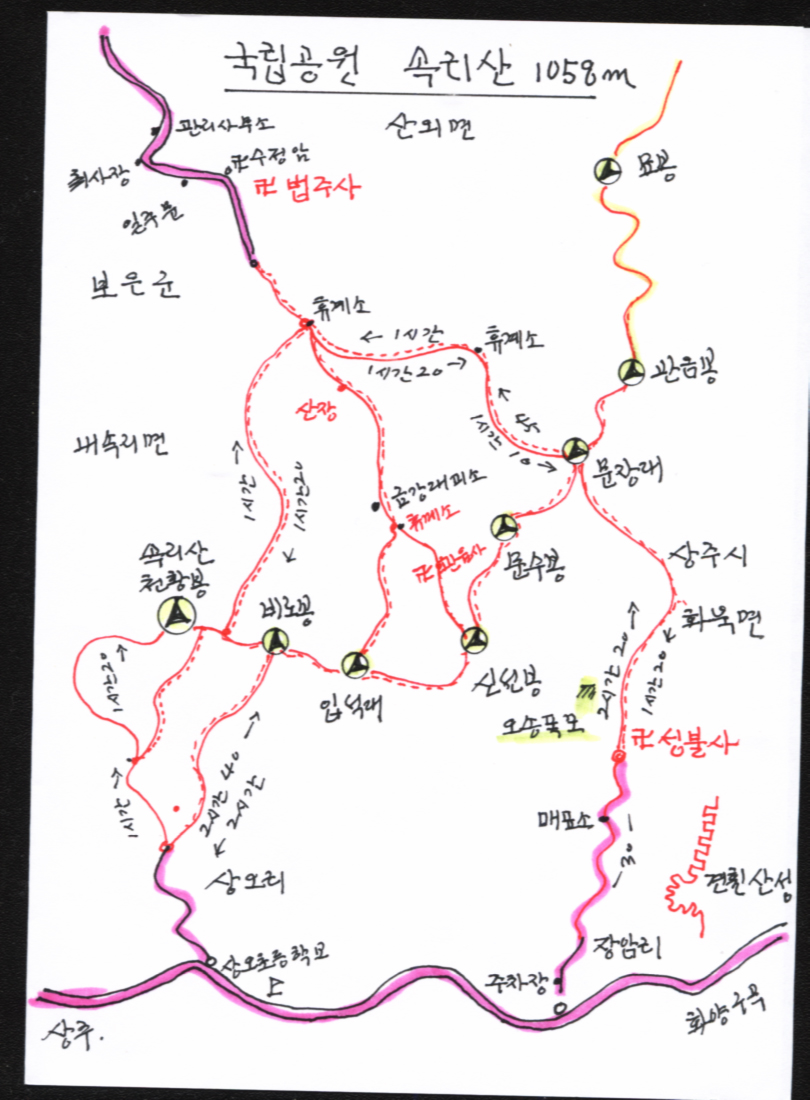 국립공원 속리산 1058m
산외면
관리사무소
卍수정암
卍 법주사
일주문
묘봉
보은군
휴게소
← 1시간
1시간20 →
휴게소
관음봉
산장
1시간 10 →
문장대
내속리면
1시간 →
1시간20
←
금강대피소
휴게소
卍관음사
문수봉
상주시
화북면
속리산
천황봉
비로봉
입석대
신선봉
2시간 20 →
1시간20 ←
오송폭포
卍성불사
1시간20 →
2시간 40 →
← 2시간
매표소
30
견훤산성
상오리
상오초등학교
장암리
주차장
화양구곡
상주.